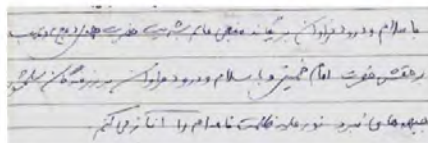 با سلام و درود فراوان بر یگانه منجی عالم بشریت حضرت مهدی (عج) و نایب
برحقش حضرت امام خمینی و با سلام و درود فراوان بر رزمندگان سلحشور
جبهه‌های نبرد نور علیه ظلمت نامه‌ام را آغاز می‌کنم.